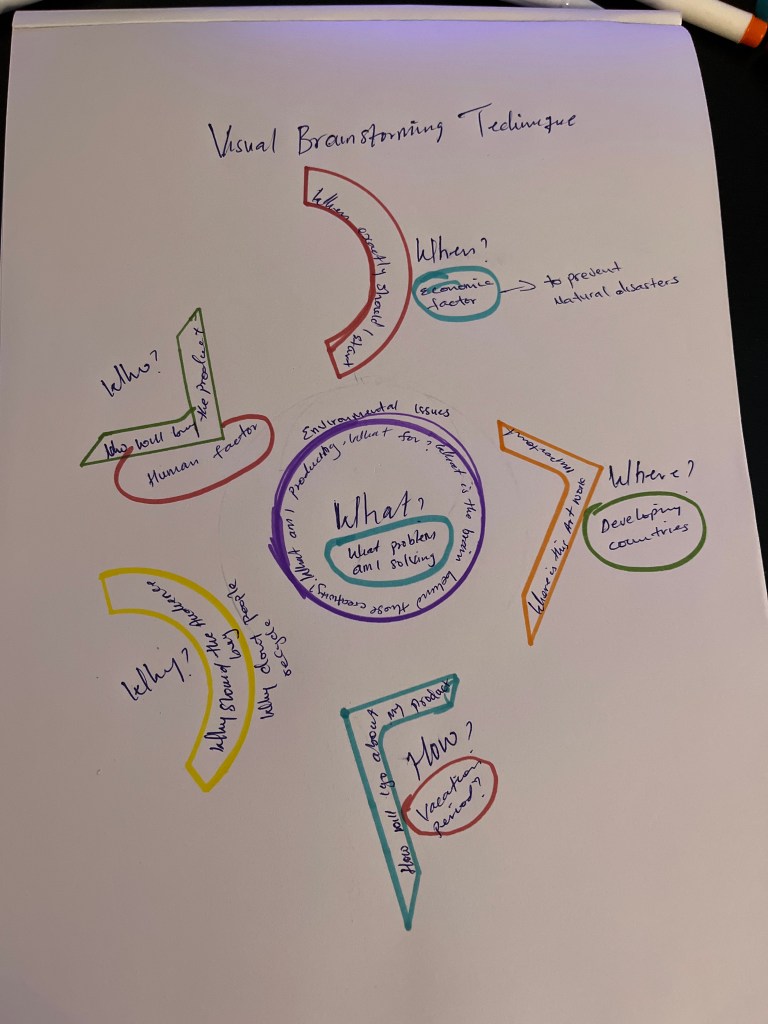 Visual Brainstorming Technique
When exactly should I start
When?
Economic
factor
to prevent
Natural disasters
Who?
Who will buy the product
Human factor
Environmental Issues
What am I producing. What for? What is the brain behind those creativity?
What?
What problem
am I solving
Where?
Where is this Art work Important
Developing
countries
Why?
Why should the Audience
buy
Why don't people
recycle
How will I go about my product
How?
Vacation
Period?